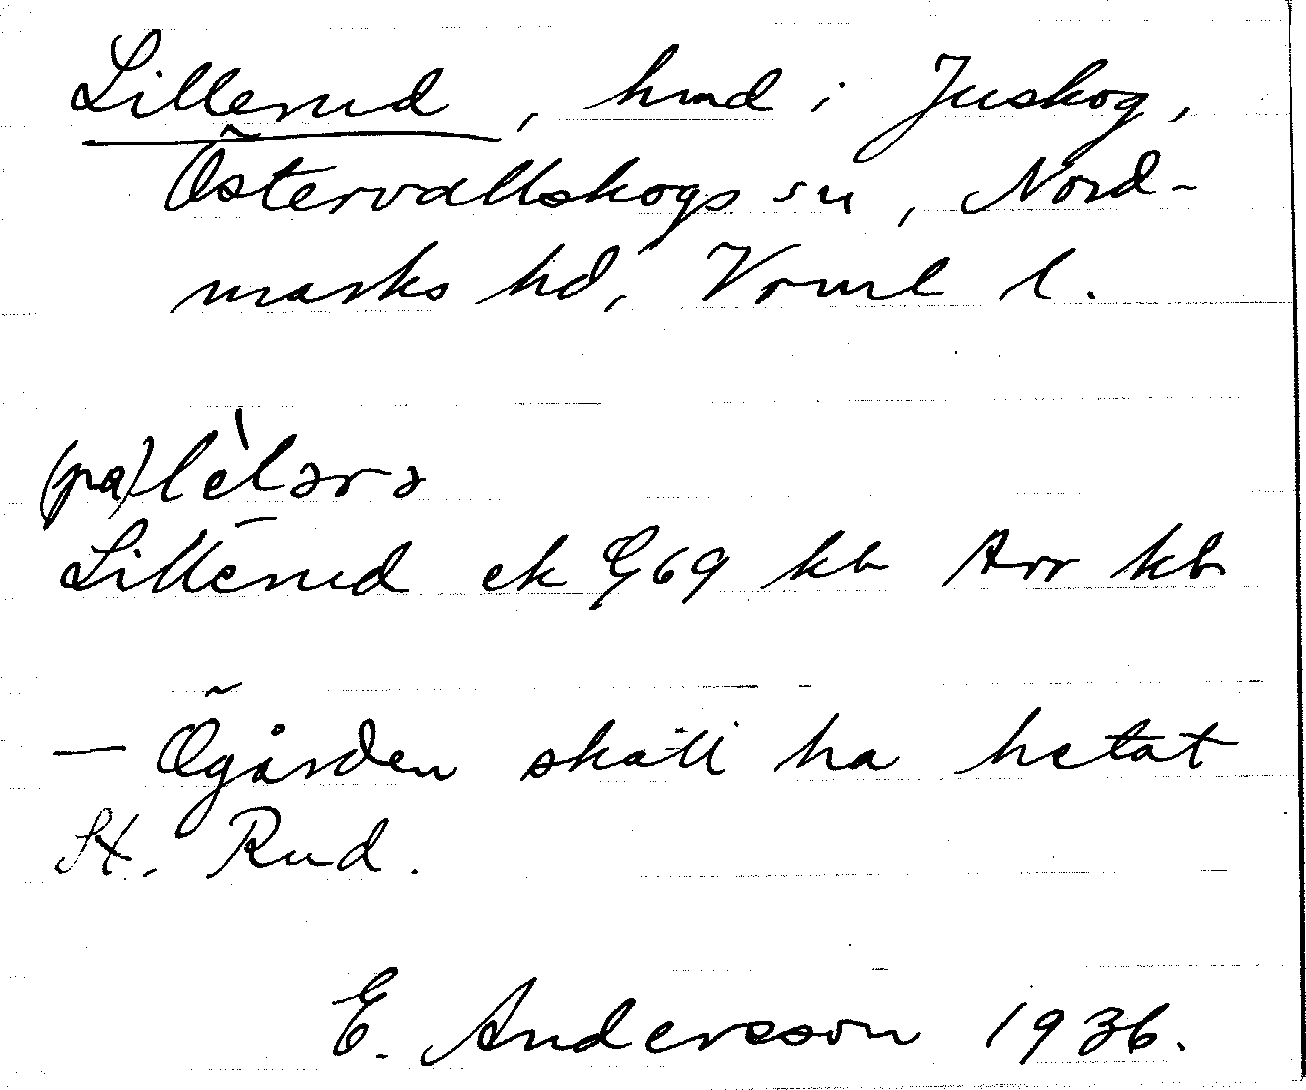 Lillerud, hmd i Juskog,
Östervallskogs sn, Nord-
marks hd, Vrml l.
(pa) lèlərə
Lillerud ek G69 kb Arr kb
— Ögården skall ha hetat
St. Rud.
E. Andersson 1936.